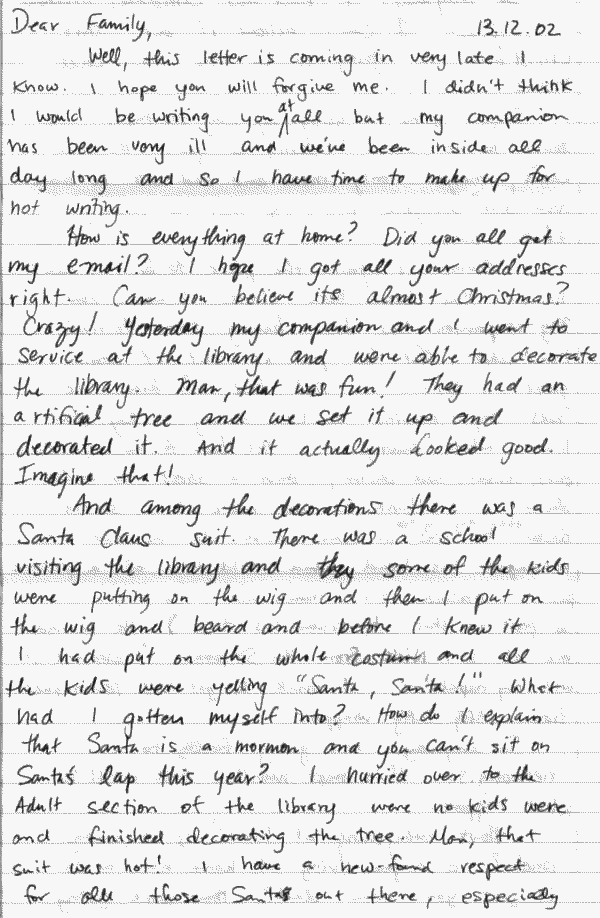 Dear Family, 13.12.02
Well, this letter is coming in very late I
know. I hope you will forgive me. I didn't think
I would be writing you at all but my companion
has been very ill and we've been inside all
day long and so I have time to make up for
not writing.
How is everything at home? Did you all get
my e-mail? I hope I got all your addresses
right. Can you believe its almost Christmas?
Crazy! Yesterday my companion and I went to
service at the library and were able to decorate
the library. Man, that was fun! They had an
artifical tree and we set it up and
decorated it. And it actually looked good.
Imagine that!
And among the decorations there was a
Santa Claus suit. There was a school
visiting the library and they some of the kids
were putting on the wig and then I put on
the wig and beard and before I knew it
I had put on the whole costume and all
the kids were yelling "Santa, Santa!" What
had I gotten myself into? How do I explain
that Santa is a mormon and you can't sit on
Santa's lap this year? I hurried over to the
Adult section of the library were no kids were
and finished decorating the tree. Man, that
suit was hot! I have a new-found respect
for all those Santas out there, especially